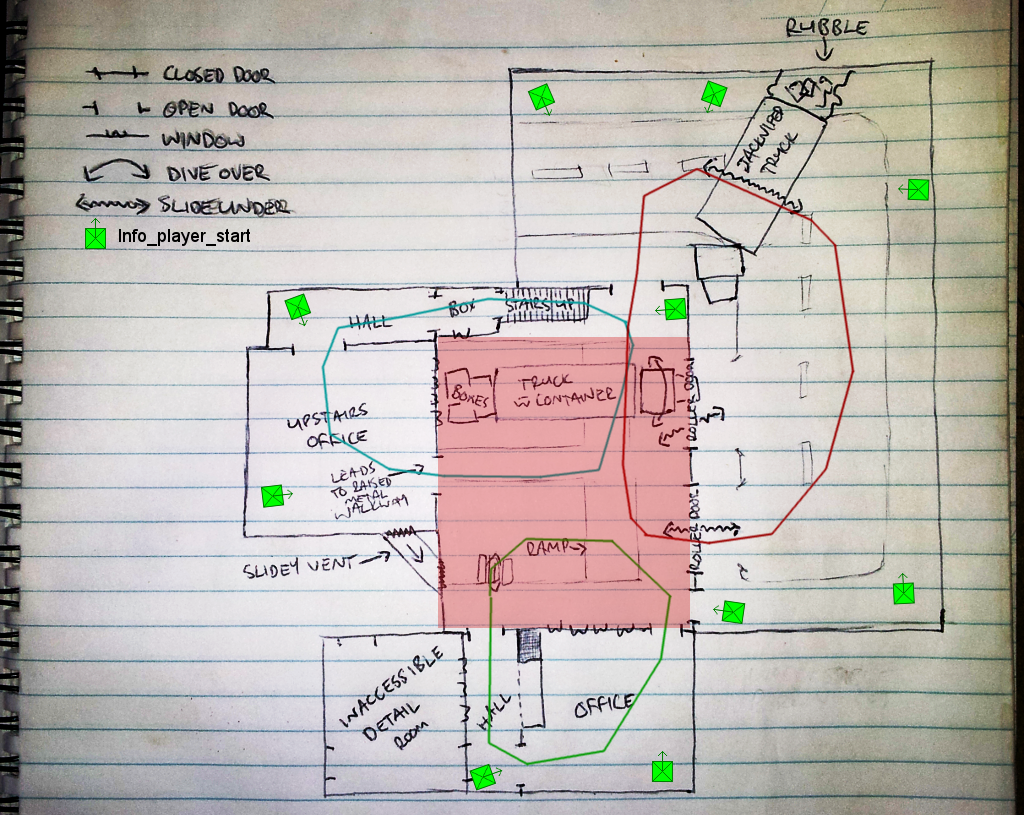 RUBBLE
CLOSED DOOR
OPEN DOOR
WINDOW
DIVE OVER
SLIDE UNDER
Info_player_start
JACKNIFED
TRUCK
HALL
BOX
STAIRS UP
BOXES
TRUCK
W CONTAINER
ROLLER DOOR
UPSTAIRS
OFFICE
LEADS
TO RAISED
METAL
WALKWAY
ROLLER DOOR
SLIDEY VENT
RAMP
INACCESSIBLE
DETAIL
ROOM
HALL
OFFICE